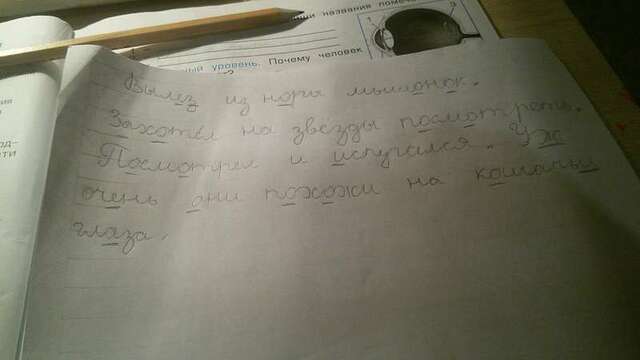 и названия помече
ный уровень. Почему человек
1
9
ия
од-
сти
Вылез из норки мышонок.
Захотел на звёзды посмотреть.
Посмотрел и испугался. Уж
очень они похожи на кошачьи
глаза.